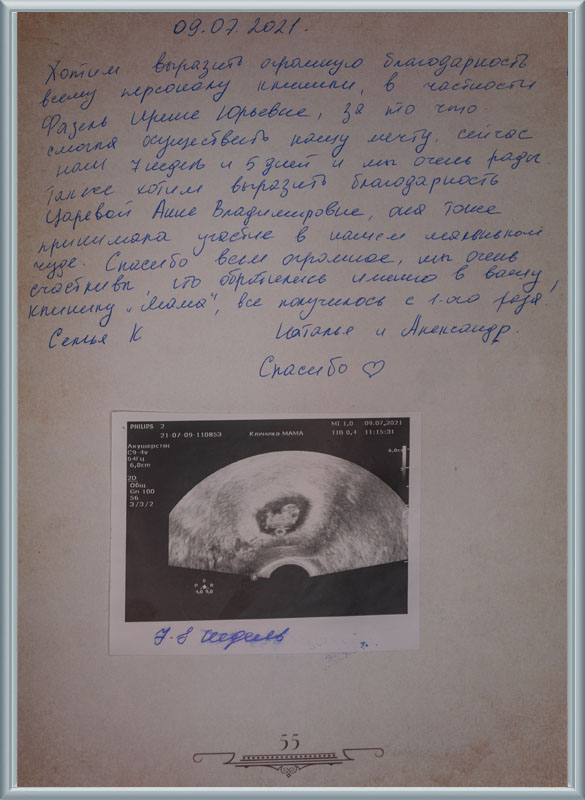 09.07.2021.
Хотим выразить огромную благодарность
всему персоналу клиники, в частности
Фазель Ирине Юрьевне, за то что
смогла осуществить нашу мечту. сейчас
нам 7 недель и 5 дней и мы очень рады.
Также хотим выразить благодарность
Царевой Анне Владимировне, она тоже
принимала участие в нашем маленьком
чуде. Спасибо всем огромное, мы очень
счастливы, что обратились именно в вашу
клинику „Мама", все получилось с 1-ого раза!
Семья К Наталья и Александр.
Спасибо ♡
PHILIPS 2 MI 1,0 09.07,2021
21-07-09-110853 Клиника МАМА TIB 0,4 11:15:31
Акушерство
C9-4v
64Гц
6,0cm
2D
Общ
Gn 100
56
3/3/2
7-8 недель
55